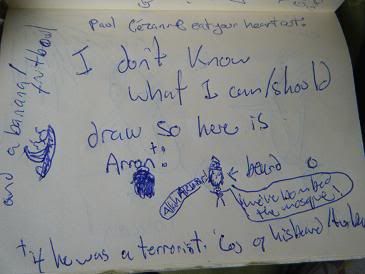 Paul Cezanne eat your heart out!
I don't know
what I can/should
draw so here is
Arron†:
← beard
We've bombed
the mosque!
† if he was a terrorist. 'Cos of his beard
and a banana/
fruitbowl